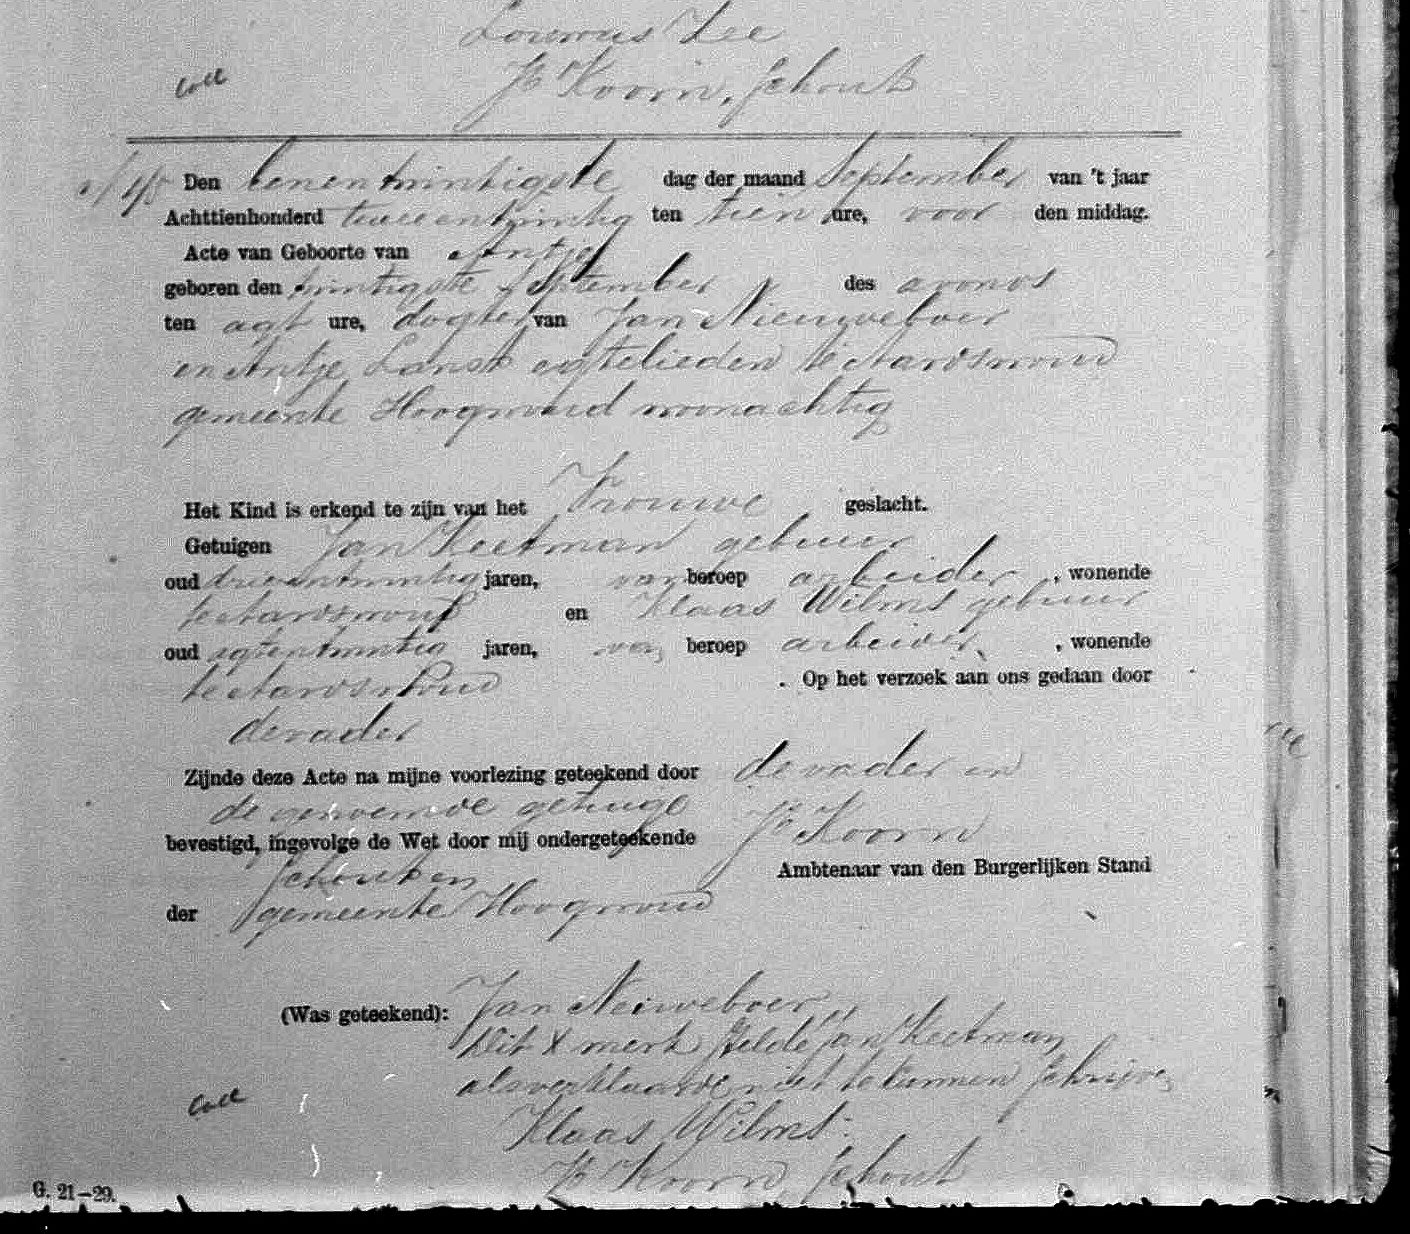 Louwrus Zee
Coll
Jb Koorn, Schout
Den eenentwintigste dag der maand September van 't jaar
Achttienhonderd tweeentwintig ten tien ure, voor den middag.
Acte van Geboorte van Antje
geboren den twintigste September des avonds
ten agt ure, dogter van Jan Nieuweboer
en Antje Lanst egtelieden te Aardswoud
gemeente Hoogwoud woonachtig
Het Kind is erkend te zijn van het Vrouwe geslacht.
Getuigen Jan Keetman gebuur
oud drieentwintig jaren, van beroep arbeider, wonende
te Aardswoud en Klaas Wilms gebuur
oud agtentwintig jaren, van beroep arbeider, wonende
te Aardswoud. Op het verzoek aan ons gedaan door
de vader
Zijnde deze Acte na mijne voorlezing geteekend door de vader en
de genoemde getuige
bevestigd, ingevolge de Wet door mij ondergeteekende Jb Koorn
Schout en Ambtenaar van den Burgerlijken Stand
der gemeente Hoogwoud
(Was geteekend): Jan Neiuweboer
Dit X merk stelde Jan Keetman
als verklaarde niet te kunnen schrijve
Coll
Klaas Wilms.
Jb Koorn Schout
G. 21–29.